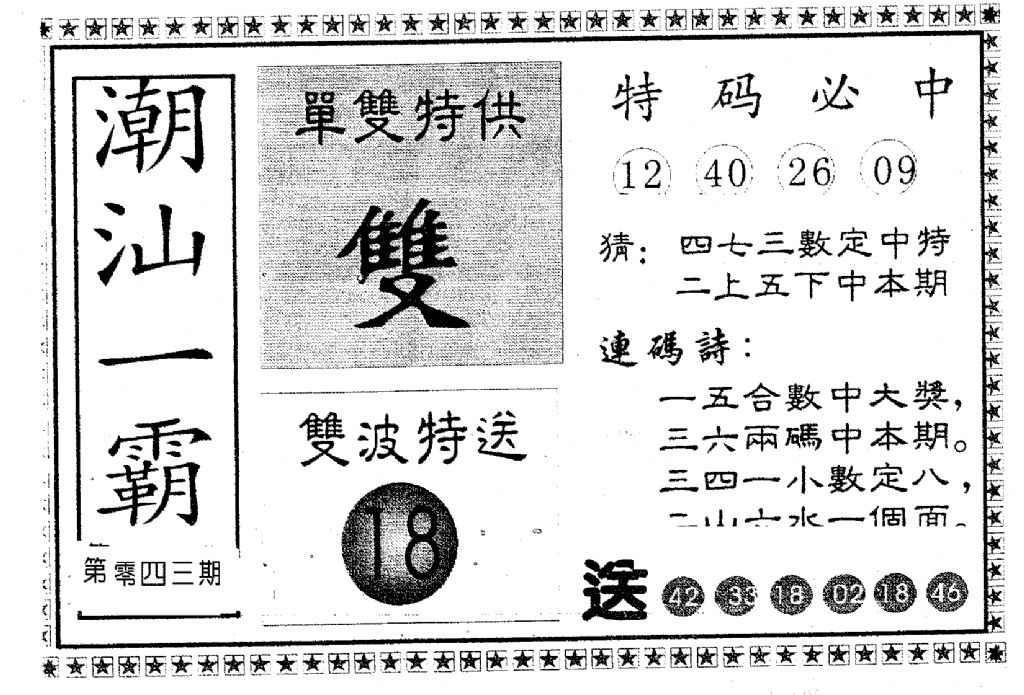 潮汕一霸
第零四三期
單雙特供
雙
雙波特送
18
特码必中
12 40 26 09
猜：四七三數定中特
二上五下中本期
連碼詩：
一五合數中大獎，
三六兩碼中本期。
三四一小數定八，
二山六水一個面。
送 42 33 18 02 18 46